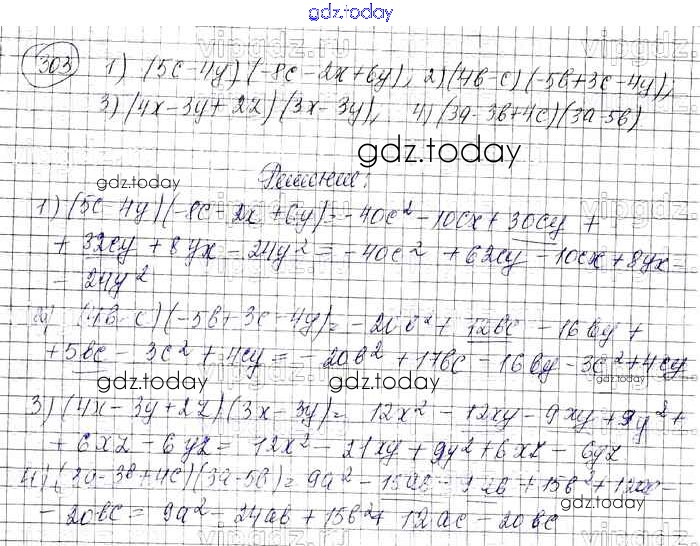 gdz.today
vipgdz.ru
303 1) (5c-4y)(-8c-2x+6y), 2) (4b-c)(-5b+3c-4y);
3) (4x-3y+2z)(3x-3y), 4) (3a-3b+4c)(3a-5b)
gdz.today
Решение:
gdz.today
1) (5c-4y)(-8c-2x+6y)=-40c²-10cx+30cy+
+32cy+8yx-24y²=-40c²+62cy-10cx+8yx-
-24y²
2) (4b-c)(-5b+3c-4y)=-20b²+12bc-16by+
+5bc-3c²+4cy=-20b²+17bc-16by-3c²+4cy
gdz.today gdz.today
3) (4x-3y+2z)(3x-3y)=12x²-12xy-9xy+9y²+
+6xz-6yz=12x²-21xy+9y²+6xz-6yz
4) (3a-3b+4c)(3a-5b)=9a²-15ab-9ab+15b²+12ac-
-20bc=9a²-24ab+15b²+12ac-20bc
gdz.today gdz.today